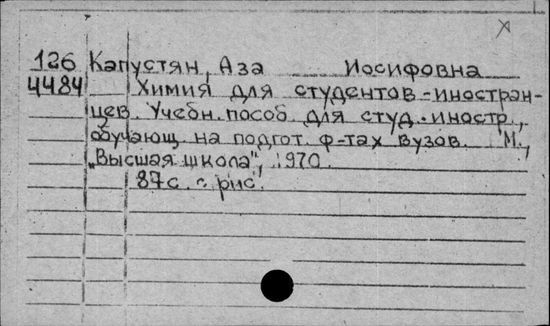 126 Капустян, Аза Иосифовна
4484 Химия для студентов-иностран-
цев. Учебн. пособ. для студ.-иностр.,
обучающ. на подгот. ф-тах вузов. М.,
„Высшая школа", 1970.
87с. с рис.